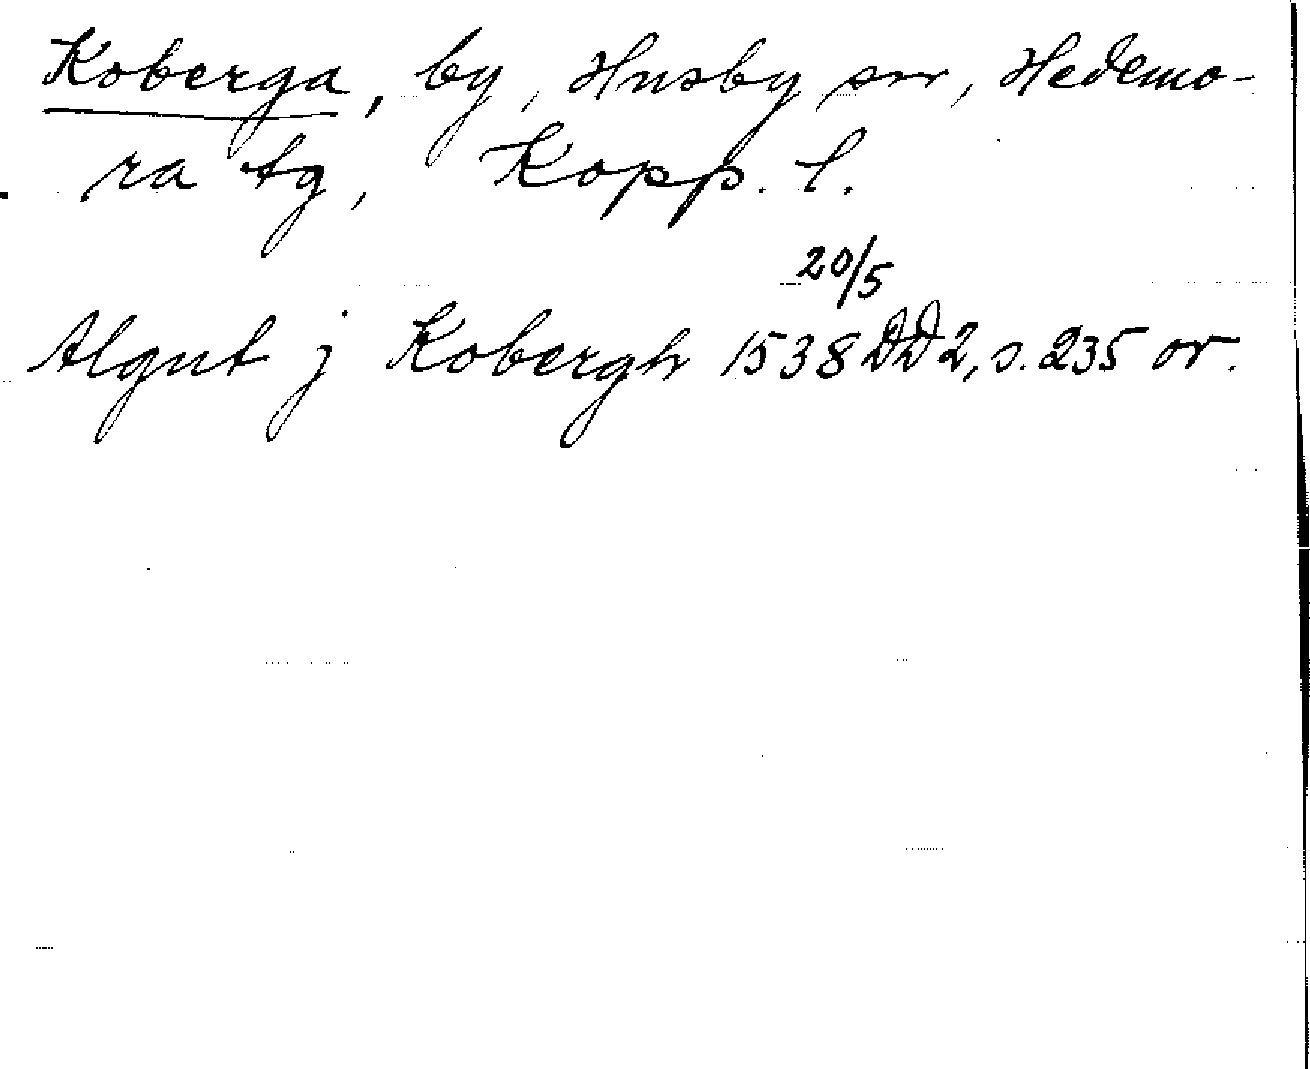 Koberga, by, Husby sn, Hedemo-
ra tg, Kopp. l.
20/5
Algut j Kobergh 1538 DD 2, s. 235 or.